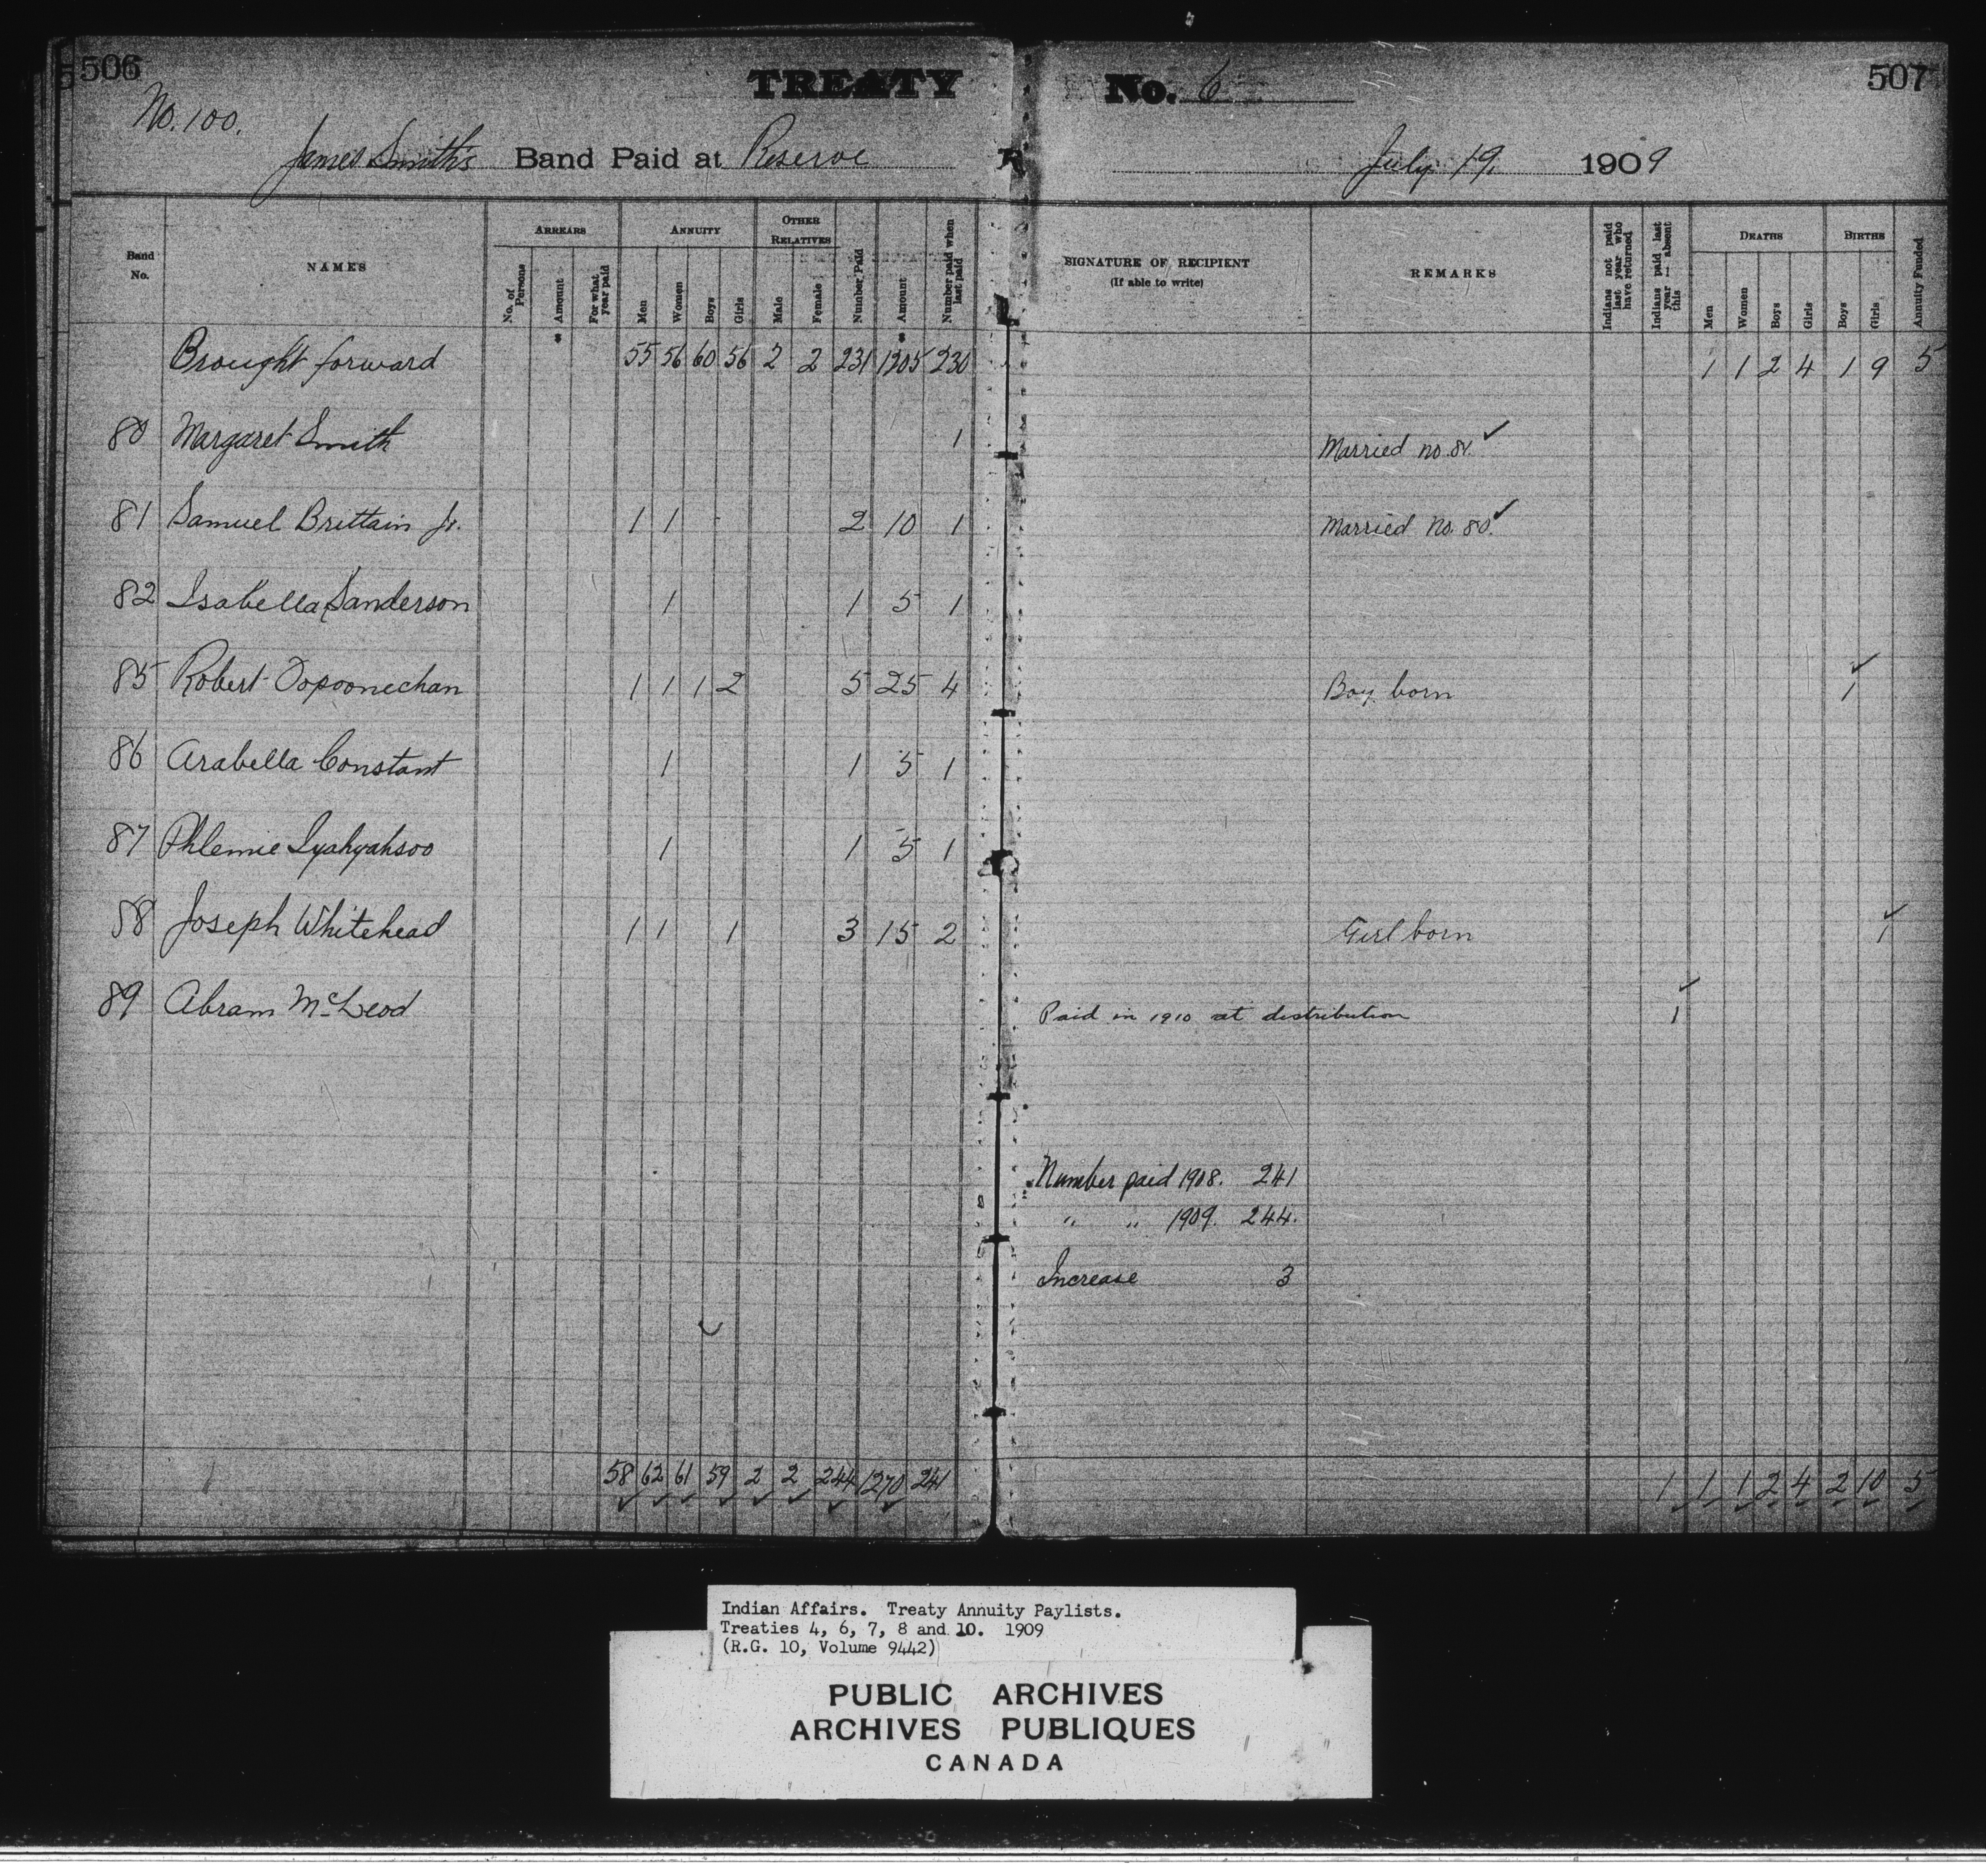 506 TREATY No. 6 507
No. 100.
James Smith's Band Paid at Reserve July 19. 1909
Band No. NAMES ARREARS ANNUITY OTHER RELATIVES SIGNATURE OF RECIPIENT (If able to write) REMARKS DEATHS BIRTHS
No. of Persons Amount For what year paid Men Women Boys Girls Male Female Number Paid Amount Number paid when last paid Indians not paid last year who have returned Indians paid last year absent this Men Women Boys Girls Boys Girls Annuity Funded
Brought forward 55 56 60 56 2 2 231 1205 230 1 1 2 4 1 9 5
80 Margaret Smith 1 Married no. 81.
81 Samuel Brittain Jr. 1 1 2 10 1 Married No. 80.
82 Isabella Sanderson 1 1 5 1
85 Robert Topoonechan 1 1 1 2 5 25 4 Boy born 1
86 Arabella Constant 1 1 5 1
87 Phlemie Iyahyahsoo 1 1 5 1
88 Joseph Whitehead 1 1 1 3 15 2 Girl born 1
89 Abram McLeod Paid in 1910 at distribution 1
Number paid 1908. 241
" " 1909. 244.
Increase 3
58 62 61 59 2 2 244 1270 241 1 1 1 2 4 2 10 5
Indian Affairs. Treaty Annuity Paylists.
Treaties 4, 6, 7, 8 and 10. 1909
(R.G. 10, Volume 9442)
PUBLIC ARCHIVES
ARCHIVES PUBLIQUES
CANADA